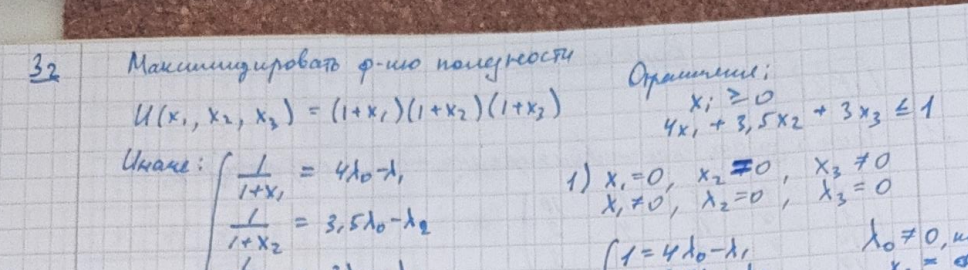 32 Максимизировать ф-ию полезности
Ограничения:
U(x₁, x₂, x₃) = (1+x₁)(1+x₂)(1+x₃)
xᵢ ≥ 0
4x₁ + 3,5x₂ + 3x₃ ≤ 1
Иначе:
1/(1+x₁) = 4λ₀-λ₁
1/(1+x₂) = 3,5λ₀-λ₂
1) x₁=0, x₂≠0, x₃≠0
λ₁≠0, λ₂=0, λ₃=0
{1=4λ₀-λ₁
λ₀≠0,